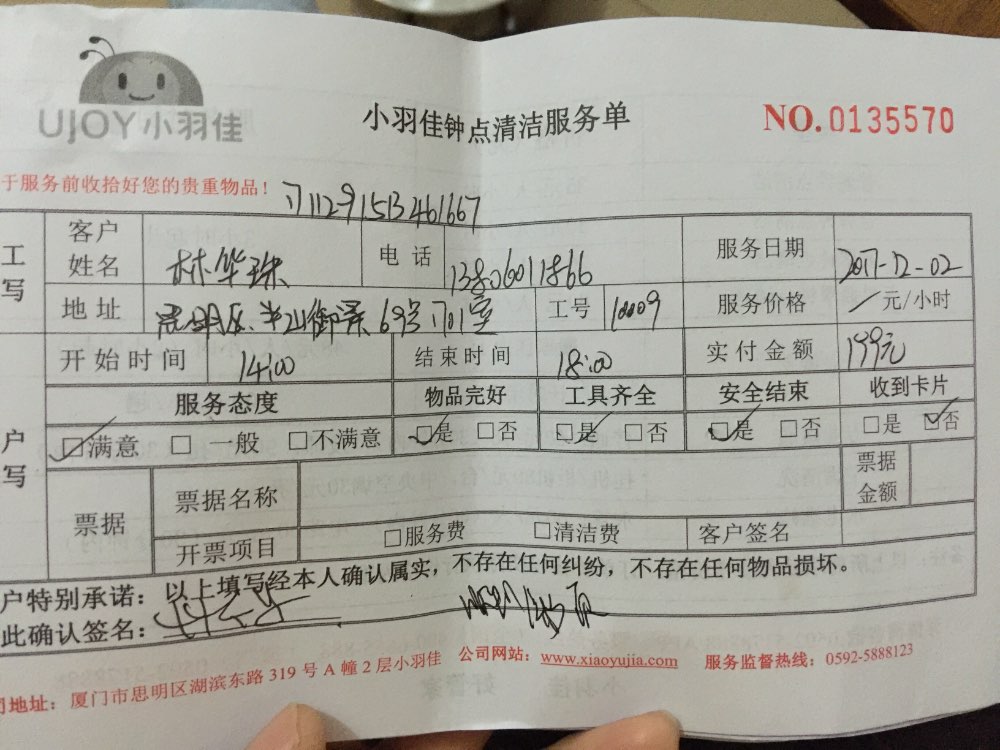 UJOY小羽佳
小羽佳钟点清洁服务单
NO.0135570
于服务前收拾好您的贵重物品！
711291513461667
工写 客户姓名 林华珠 电话 13806011866 服务日期 2017-12-02
地址 思明区 半山御景 69号1701室 工号 10009 服务价格 / 元/小时
开始时间 14:00 结束时间 18:00 实付金额 199元
服务态度 物品完好 工具齐全 安全结束 收到卡片
户写 ☑满意 □一般 □不满意 ☑是 □否 ☑是 □否 ☑是 □否 □是 ☑否
票据 票据名称 票据金额
开票项目 □服务费 □清洁费 客户签名
户特别承诺：以上填写经本人确认属实，不存在任何纠纷，不存在任何物品损坏。
此确认签名：
司地址：厦门市思明区湖滨东路319号A幢2层小羽佳 公司网站：www.xiaoyujia.com 服务监督热线：0592-5888123